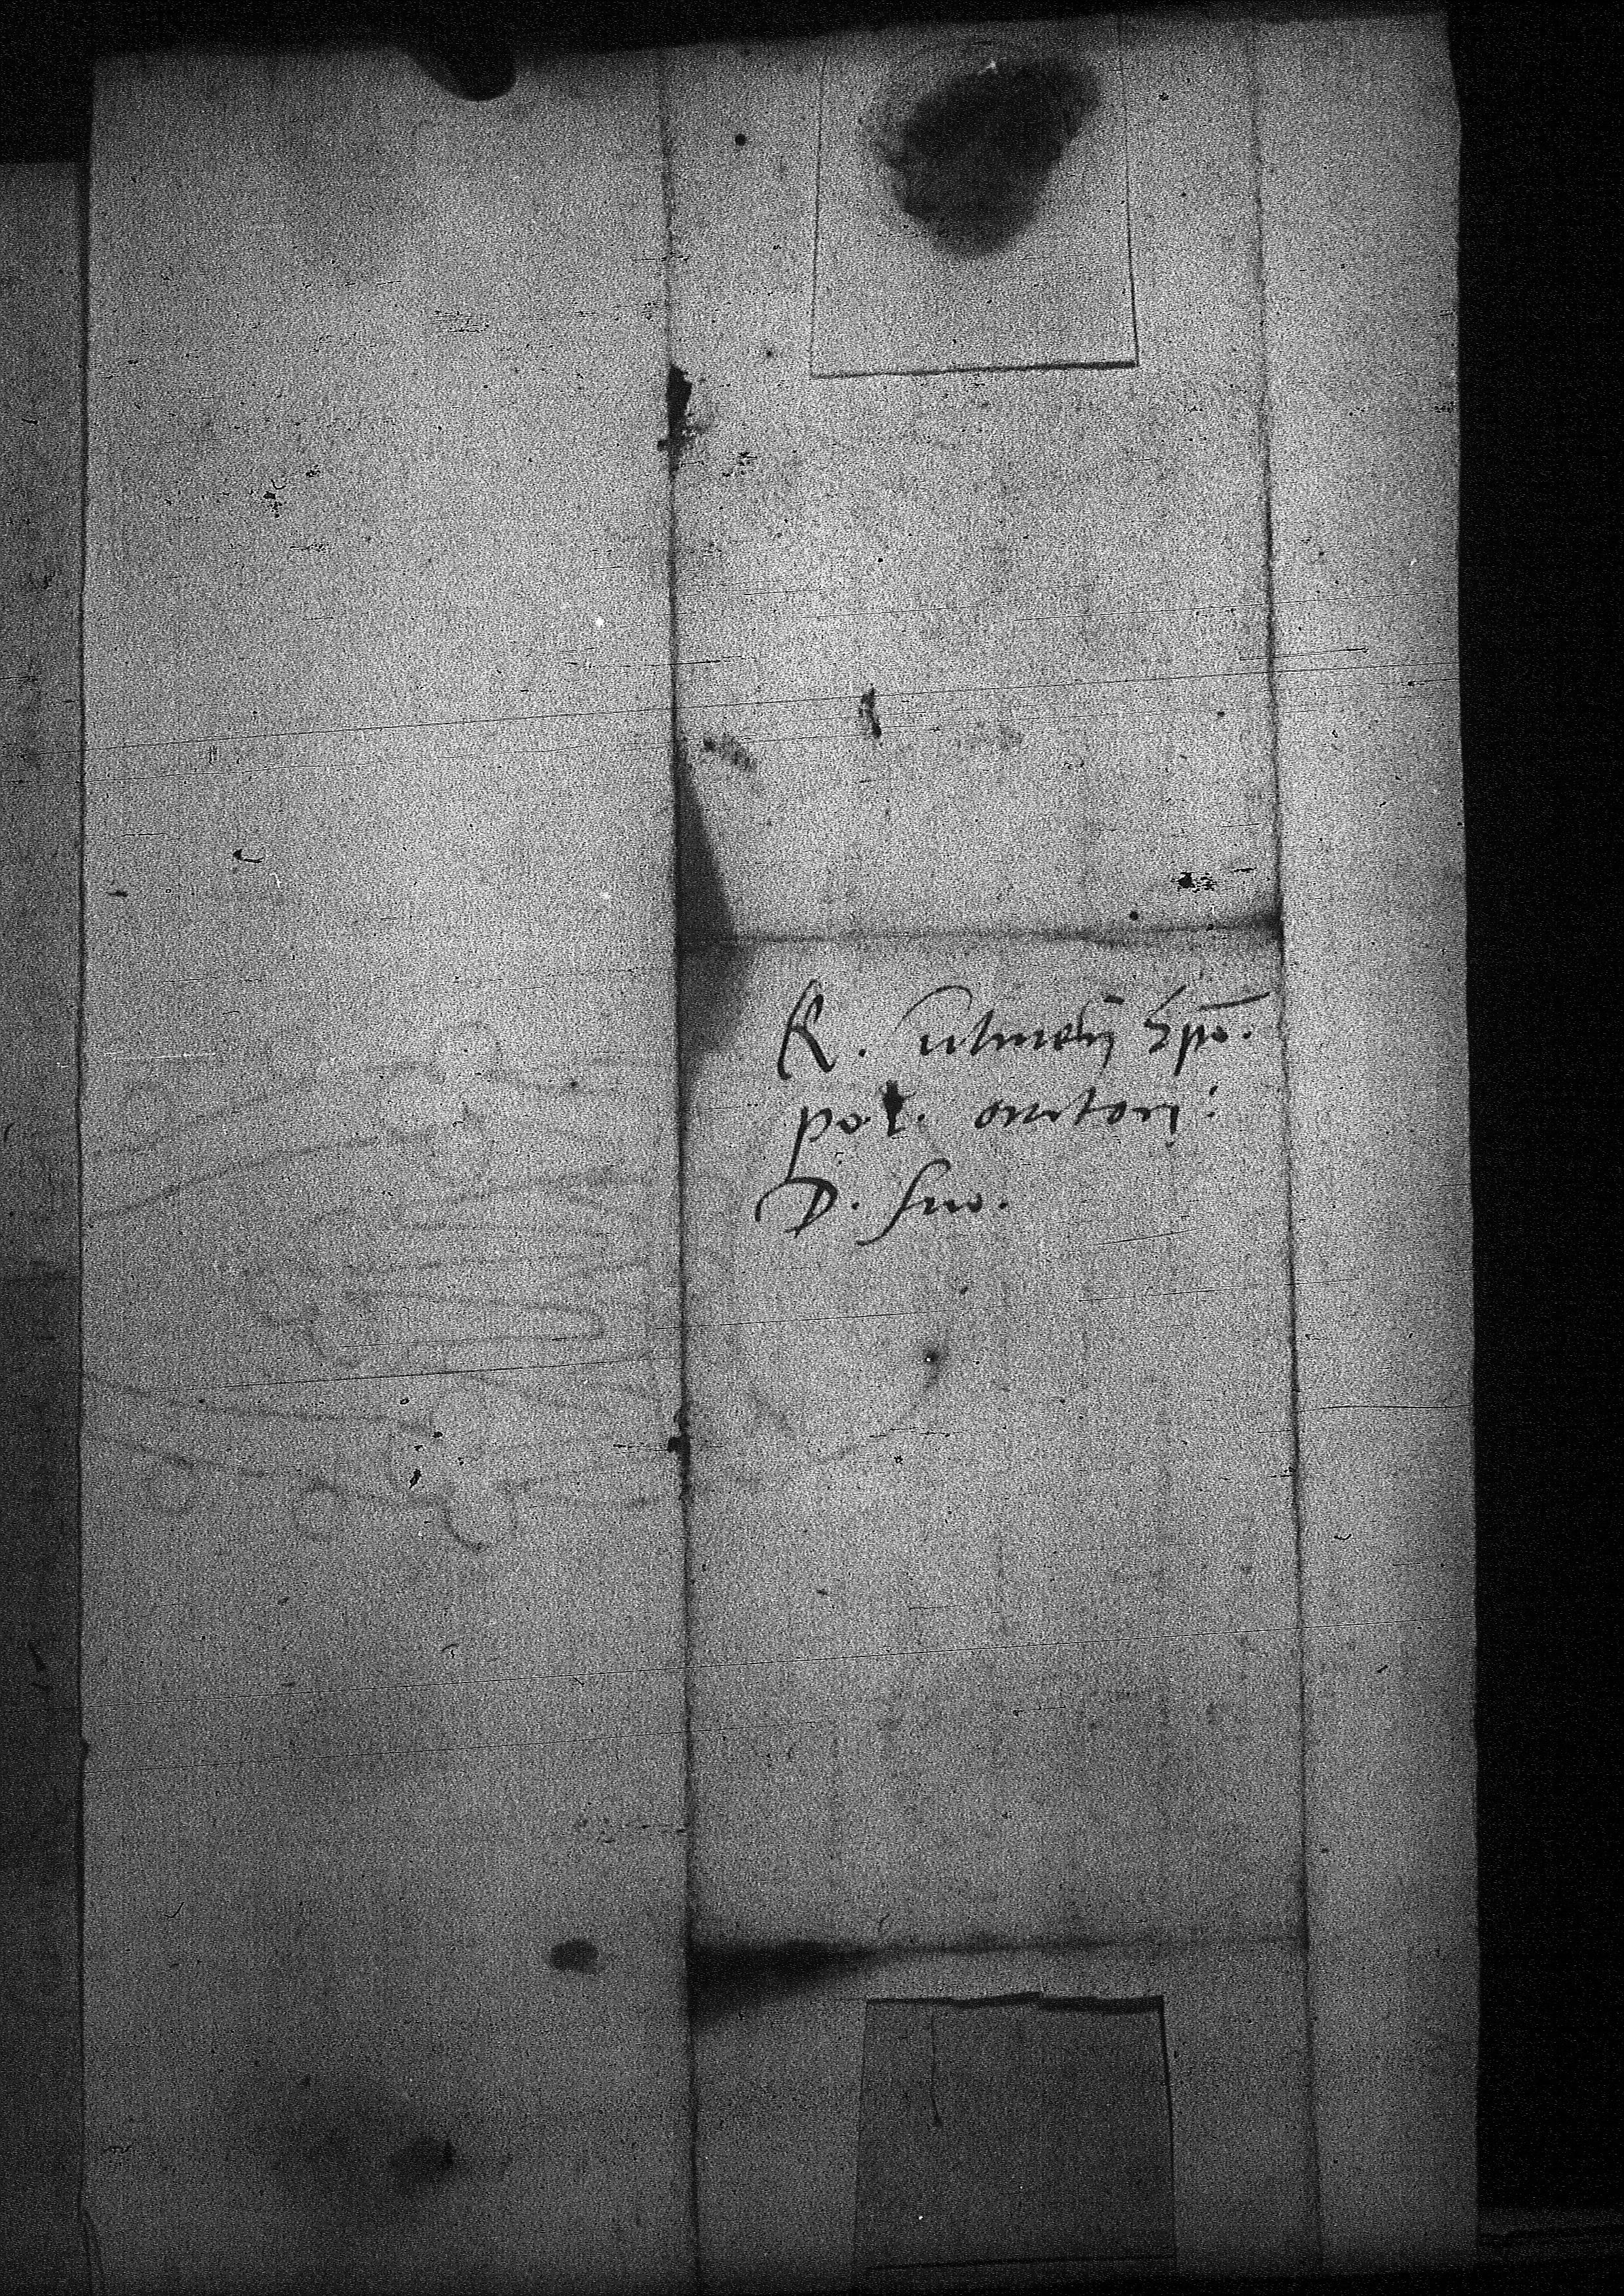 R. Culmen̄ Ep̄o.
pol. oratorj:
D. suo.